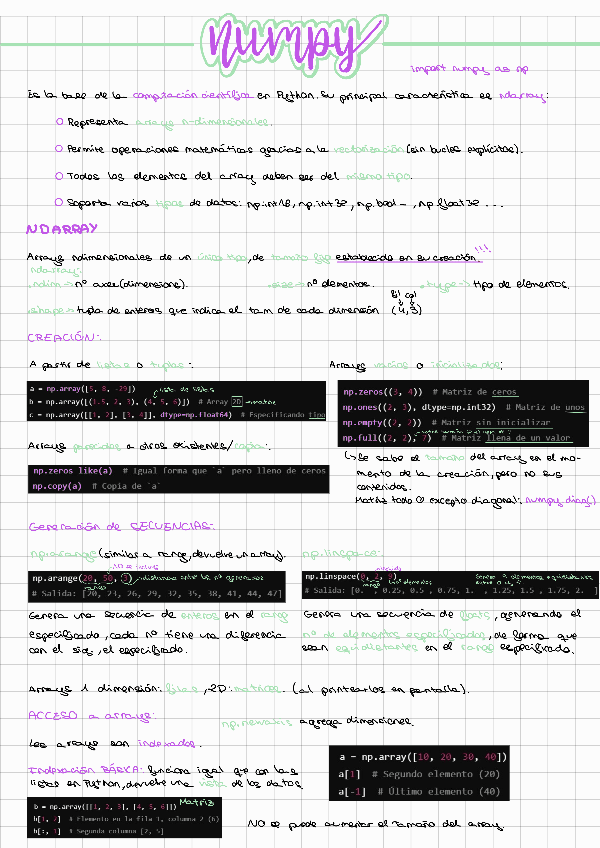 numpy
import numpy as np
Es la base de la computación científica en Python. Su principal característica es ndarray:
Representa arrays n-dimensionales.
Permite operaciones matemáticas gracias a la vectorización (sin bucles explícitos).
Todos los elementos del array deben ser del mismo tipo.
Soporta varios tipos de datos: np.int16, np.int32, np.bool_, np.float32 ...
NDARRAY
Arrays ndimensionales de un único tipo, de tamaño fijo establecido en su creación.
!!!
ndarray:
.ndim -> nº axes (dimensions).
.size -> nº elementos.
.dtype -> tipo de elementos.
fil col
.shape -> tupla de enteros que indica el tam de cada dimensión (4,3)
CREACIÓN:
A partir de listas o tuplas:
Arrays vacíos o inicializados:
a = np.array([5, 8, -20])
lista de listas
b = np.array([(1.5, 2, 3), (4, 5, 6)]) # Array 2D -> matriz
c = np.array([[1, 2], [3, 4]], dtype=np.float64) # Especificando tipo
np.zeros((3, 4)) # Matriz de ceros
np.ones((2, 3), dtype=np.int32) # Matriz de unos
np.empty((2, 2)) # Matriz sin inicializar
np.full((2, 2), 7) # Matriz llena de un valor
Arrays parecidos a otros existentes/copia:
np.zeros_like(a) # Igual forma que `a` pero lleno de ceros
np.copy(a) # Copia de `a`
Se sabe el tamaño del array en el mo-
mento de la creación, pero no sus
contenidos.
Matriz todo 0 excepto diagonal: numpy.diag()
Generación de SECUENCIAS:
np.arange (similar a range, devuelve un array).
np.linspace:
np.arange(20, 50, 3)
# Salida: [20, 23, 26, 29, 32, 35, 38, 41, 44, 47]
np.linspace(0, 2, 9)
# Salida: [0. , 0.25, 0.5 , 0.75, 1. , 1.25, 1.5 , 1.75, 2. ]
Genera una secuencia de enteros en el rango
especificado, cada nº tiene una diferencia
con el sig, el especificado.
Genera una secuencia de floats, generando el
nº de elementos especificados, de forma que
sean equidistantes en el rango especificado.
Arrays 1 dimensión: filas, 2D: matrices. (al printearlos en pantalla).
ACCESO a arrays:
np.newaxis agrega dimensiones.
Los arrays son indexados.
Indexación BÁSICA: funciona igual que con las
listas en Python, devuelve una vista de los datos.
a = np.array([10, 20, 30, 40])
a[1] # Segundo elemento (20)
a[-1] # Último elemento (40)
b = np.array([[1, 2, 3], [4, 5, 6]]) Matriz
b[1, 2] # Elemento en la fila 1, columna 2 (6)
b[:, 1] # Segunda columna [2, 5]
NO se puede aumentar el tamaño del array